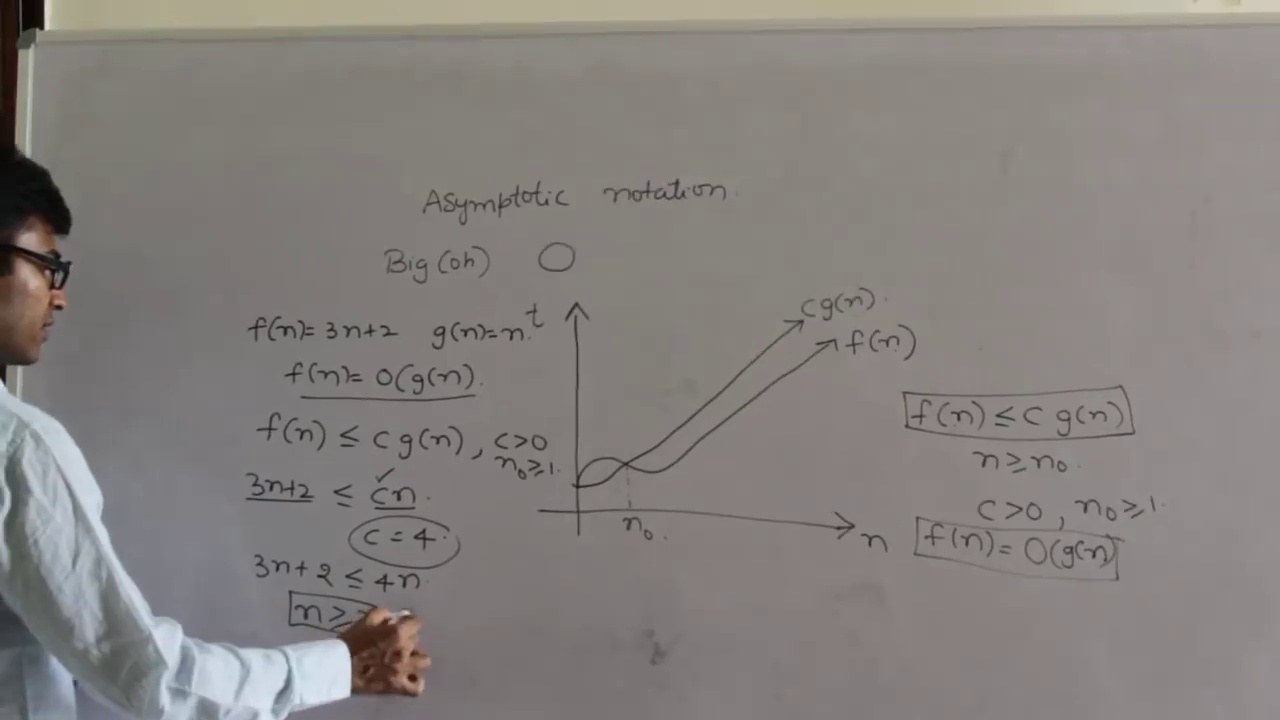 Asymptotic notation.
Big (oh) O
f(n) = 3n+2 g(n) = n.
f(n) = O(g(n).
f(n) ≤ c g(n), c>0
n₀≥1.
3n+2 ≤ cn.
c = 4.
3n+2 ≤ 4n.
n ≥
t
c g(n).
f(n)
n₀.
n
f(n) ≤ c g(n)
n ≥ n₀.
c>0, n₀≥1.
f(n) = O(g(n)